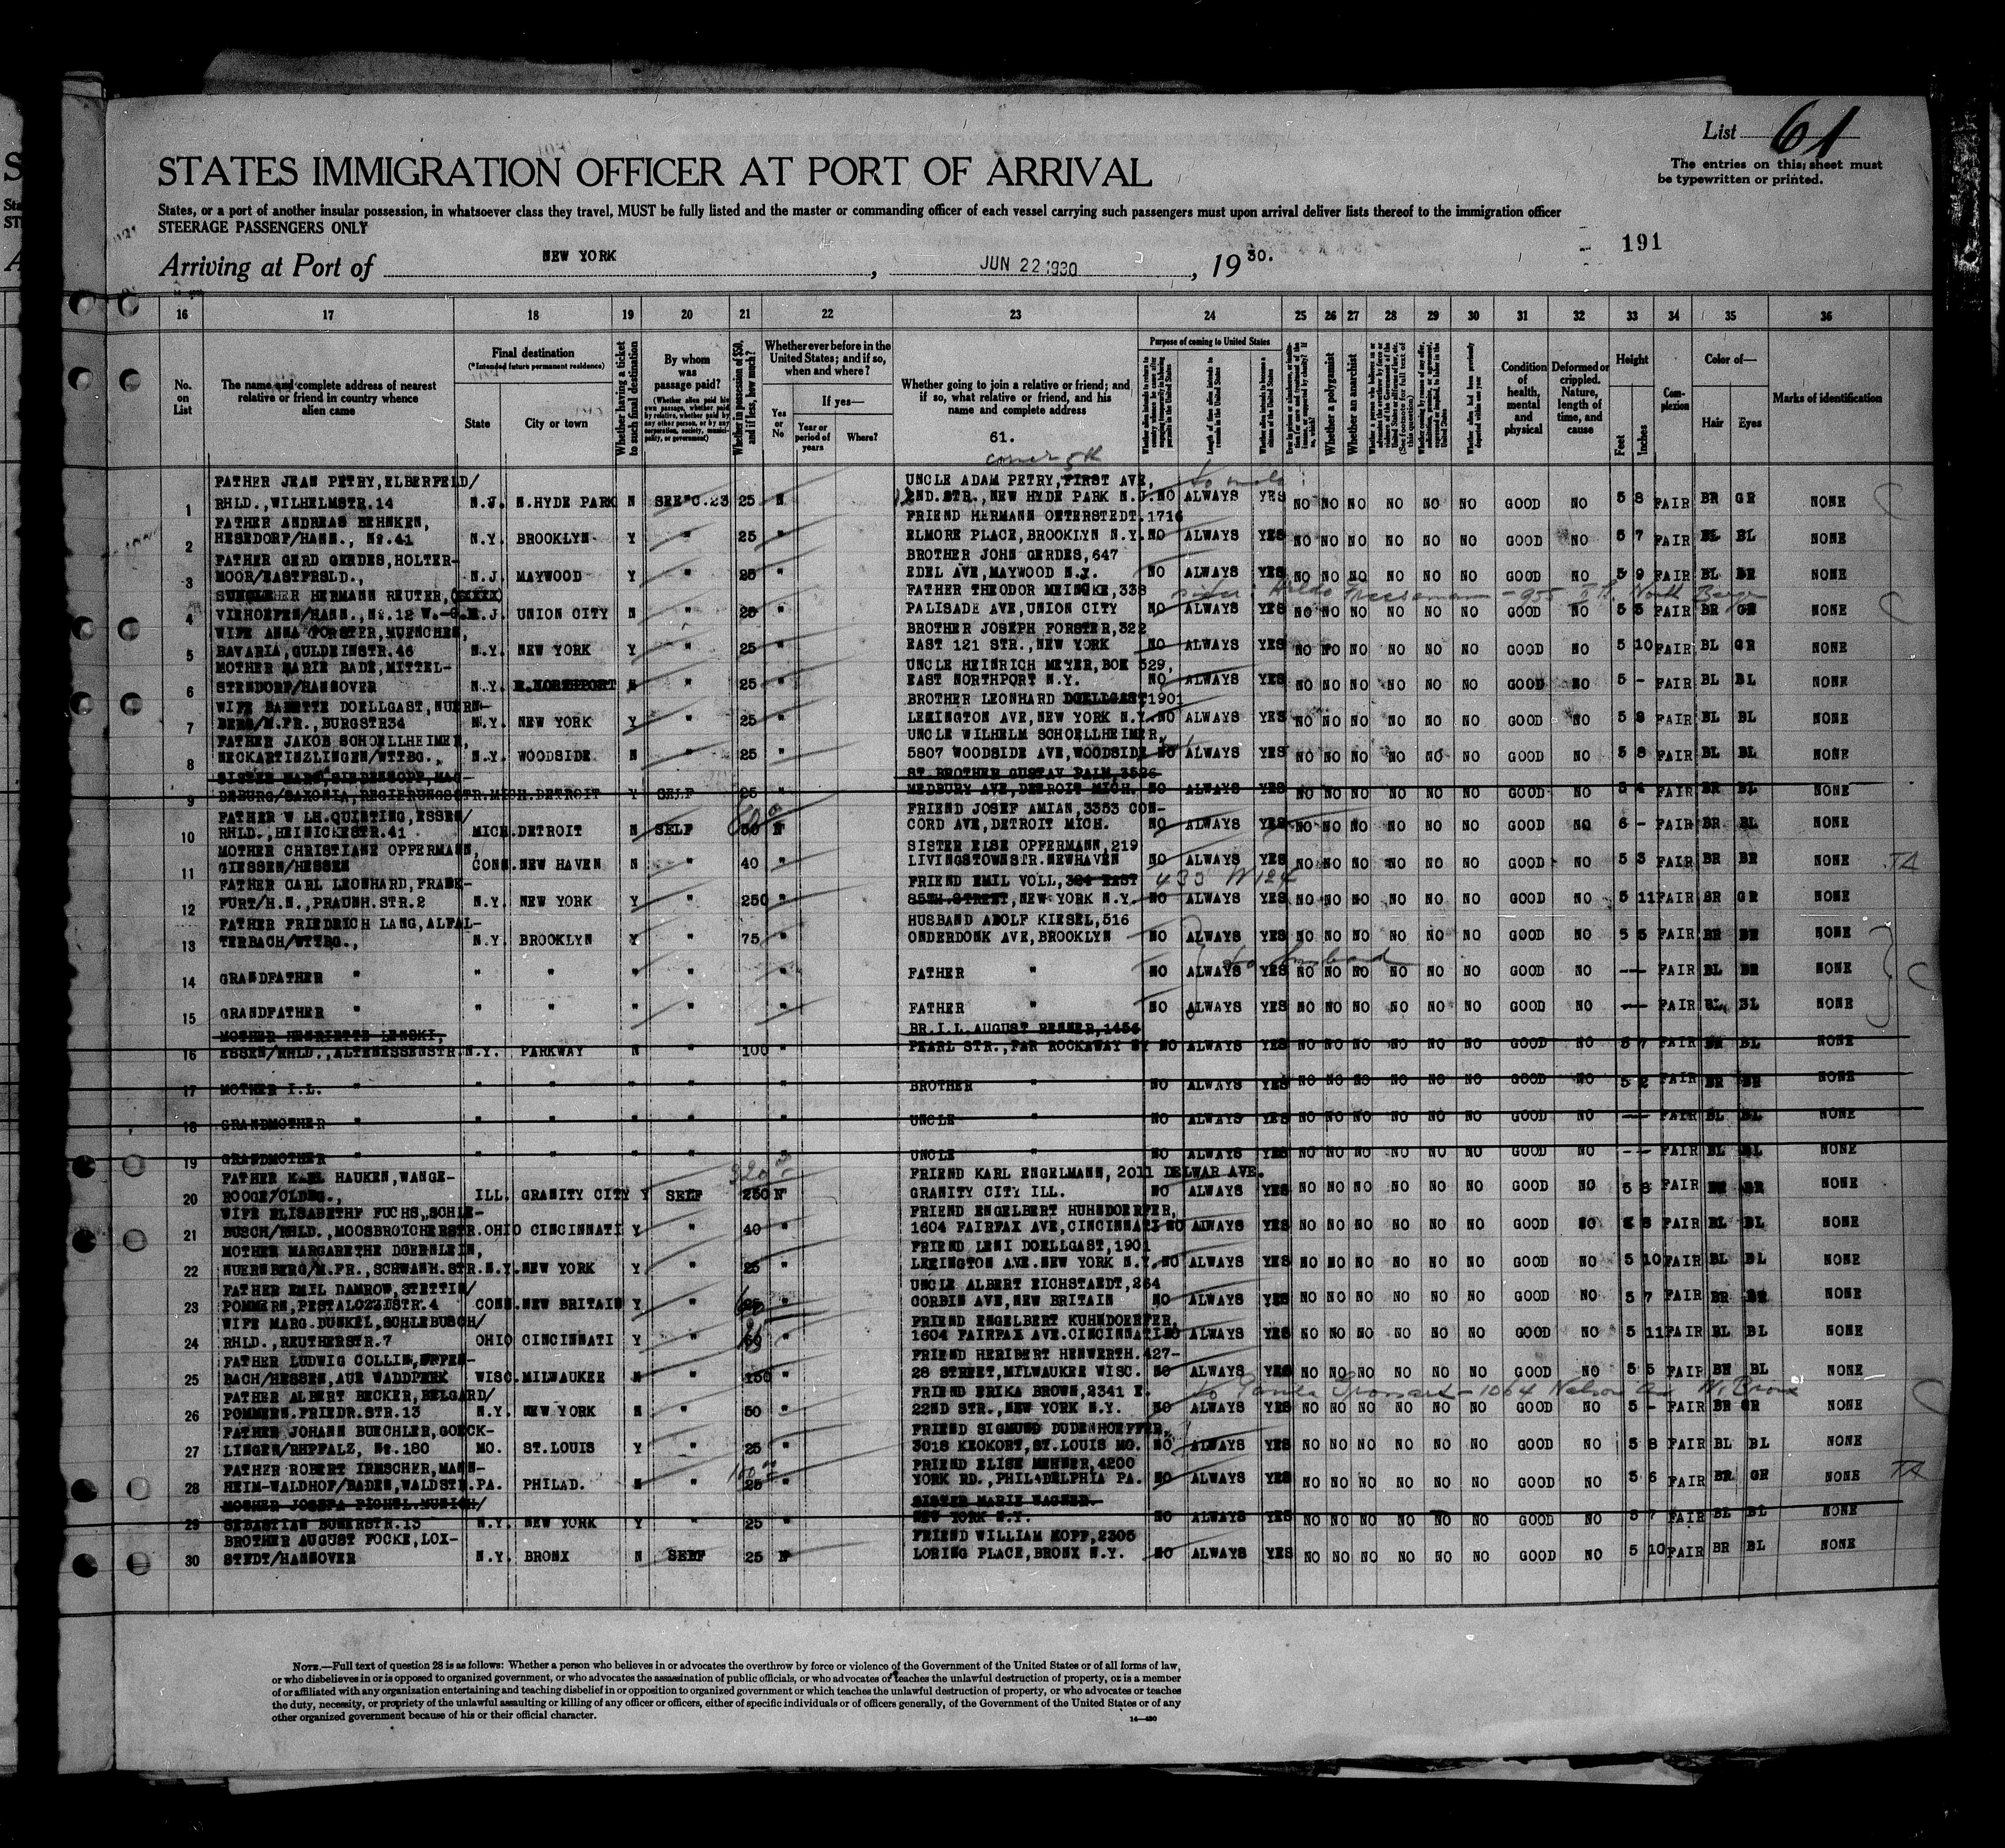 List 61
The entries on this sheet must
be typewritten or printed.
STATES IMMIGRATION OFFICER AT PORT OF ARRIVAL
States, or a port of another insular possession, in whatsoever class they travel, MUST be fully listed and the master or commanding officer of each vessel carrying such passengers must upon arrival deliver lists thereof to the immigration officer
STEERAGE PASSENGERS ONLY
191
Arriving at Port of NEW YORK, JUN 22 1930, 19 30.
16 17 18 19 20 21 22 23 24 25 26 27 28 29 30 31 32 33 34 35 36
No. on List
The name and complete address of nearest relative or friend in country whence alien came
Final destination
(*Intended future permanent residence)
State
City or town
Whether having a ticket to such final destination
By whom was passage paid?
(Whether alien paid his own passage, whether paid by relative, whether paid by any other person, or by any corporation, society, municipality, or government)
Whether in possession of $50, and if less, how much?
Whether ever before in the United States; and if so, when and where?
Yes or No
If yes—
Year or period of years
Where?
Whether going to join a relative or friend; and if so, what relative or friend, and his name and complete address
61.
corner 5th
Purpose of coming to United States
Length of time alien intends to remain in the United States
Whether alien intends to become a citizen of the United States
Whether a polygamist
Whether an anarchist
Condition of health, mental and physical
Deformed or crippled. Nature, length of time, and cause
Height
Feet
Inches
Complexion
Color of—
Hair
Eyes
Marks of identification
FATHER JEAN PETRY, ELBERFELD/ UNCLE ADAM PETRY, FIRST AVE,
1 RHLD., WILHELMSTR.14 N.J. N.HYDE PARK N SEE C.23 25 N 2ND.STR., NEW HYDE PARK N.J. NO ALWAYS YES NO NO NO NO NO NO GOOD NO 5 8 FAIR BR GR NONE
FATHER ANDREAS BEHNKEN, FRIEND HERMANN OTTERSTEDT.1716
2 HESEDORF/HANN., №.41 N.Y. BROOKLYN Y " 25 " ELMORE PLACE, BROOKLYN N.Y. NO ALWAYS YES NO NO NO NO NO NO GOOD NO 5 7 FAIR BL BL NONE
FATHER GERD GERDES, HOLTER- BROTHER JOHN GERDES, 647
3 MOOR/EASTFRSLD., N.J. MAYWOOD Y " 25 " EDEL AVE, MAYWOOD N.Y. NO ALWAYS YES NO NO NO NO NO NO GOOD NO 5 9 FAIR BL BR NONE
HERMANN REUTER, FATHER THEODOR MEINGKE, 338
4 VIEHOEFEN/HANN., №.12 N.J. UNION CITY N " 25 " PALISADE AVE, UNION CITY NO ALWAYS YES NO NO NO NO NO NO GOOD NO 5 5 FAIR BR GR NONE
WIFE ANNA FORSTER, MUENCHEN, BROTHER JOSEPH FORSTER, 322
5 BAVARIA, GULDEINSTR.46 N.Y. NEW YORK Y " 25 " EAST 121 STR., NEW YORK NO ALWAYS YES NO NO NO NO NO NO GOOD NO 5 10 FAIR BL GR NONE
MOTHER MARIE BADE, MITTEL- UNCLE HEINRICH MEYER, BOX 529,
6 STENDORF/HANNOVER N.Y. E.NORTHPORT N " 25 " EAST NORTHPORT N.Y. NO ALWAYS YES NO NO NO NO NO NO GOOD NO 5 - FAIR BL BL NONE
WIFE BABETTE DOELLGAST, NUERN- BROTHER LEONHARD DOELLGAST 1901
7 BERG/M.FR., BURGSTR34 N.Y. NEW YORK Y " 25 " LEXINGTON AVE, NEW YORK N.Y. NO ALWAYS YES NO NO NO NO NO NO GOOD NO 5 8 FAIR BL BL NONE
FATHER JAKOB SCHOELLHEIMER, UNCLE WILHELM SCHOELLHEIMER,
8 NECKARTINZLINGEN/WTTBG., N.Y. WOODSIDE N " 25 " 5807 WOODSIDE AVE, WOODSIDE NO ALWAYS YES NO NO NO NO NO NO GOOD NO 5 8 FAIR BL BL NONE
SISTER MARG, SIEDENKOPF, MAG- ST BROTHER GUSTAV PALM, 3526
9 DEBURG/SAXONIA, REGIERUNGSSTR. MICH. DETROIT Y SELF 25 " MEDBURY AVE, DETROIT MICH. NO ALWAYS YES NO NO NO NO NO NO GOOD NO 5 4 FAIR BR BL NONE
FATHER W LH. QUINTING, ESSEN/ FRIEND JOSEF AMIAN, 3353 CON-
10 RHLD., HEINICKESTR.41 MICH. DETROIT N SELF 50 N CORD AVE, DETROIT MICH. NO ALWAYS YES NO NO NO NO NO NO GOOD NO 6 - FAIR BR BL NONE
MOTHER CHRISTIANE OPFERMANN, SISTER ELSE OPFERMANN, 219
11 GIESSEN/HESSEN CONN. NEW HAVEN N " 40 " LIVINGSTOWNSTR. NEWHAVEN NO ALWAYS YES NO NO NO NO NO NO GOOD NO 5 3 FAIR BR BR NONE
FATHER CARL LEONHARD, FRANK- FRIEND EMIL VOLL, 324 EAST 435 W 124
12 FURT/H.N., PRAUNH.STR.2 N.Y. NEW YORK Y " 250 " 85TH STREET, NEW YORK N.Y. NO ALWAYS YES NO NO NO NO NO NO GOOD NO 5 11 FAIR BR GR NONE
FATHER FRIEDRICH LANG, ALFAL- HUSBAND ADOLF KIESEL, 516
13 TERBACH/WTTBG., N.Y. BROOKLYN Y " 75 " ONDERDONK AVE, BROOKLYN NO ALWAYS YES NO NO NO NO NO NO GOOD NO 5 5 FAIR BR BR NONE
to husband
14 GRANDFATHER " " " " " " FATHER " NO ALWAYS YES NO NO NO NO NO NO GOOD NO -- FAIR BL BR NONE
15 GRANDFATHER " " " " " " FATHER " NO ALWAYS YES NO NO NO NO NO NO GOOD NO -- FAIR BL BL NONE
MOTHER HENRIETTE LENSKI, BR.I.L.AUGUST RENNER, 1454
16 ESSEN/RHLD., ALTENESSENSTR. N.Y. PARKWAY N " 100 " PEARL STR., FAR ROCKAWAY NY NO ALWAYS YES NO NO NO NO NO NO GOOD NO 5 7 FAIR BR BL NONE
17 MOTHER I.L. " " " " " " BROTHER " NO ALWAYS YES NO NO NO NO NO NO GOOD NO 5 2 FAIR BR BR NONE
18 GRANDMOTHER " " " " " " UNCLE " NO ALWAYS YES NO NO NO NO NO NO GOOD NO -- FAIR BL BL NONE
19 GRANDMOTHER " " " " " " UNCLE " NO ALWAYS YES NO NO NO NO NO NO GOOD NO -- FAIR BL BL NONE
FATHER KARL HAUKEN, WANGE- FRIEND KARL ENGELMANN, 2011 DELWAR AVE.
20 ROOGE/OLDBG., ILL. GRANITY CITY Y SELF 250 N GRANITY CITY ILL. NO ALWAYS YES NO NO NO NO NO NO GOOD NO 5 8 FAIR BR BR NONE
WIFE ELISABETHF FUCHS, SCHLE- FRIEND ENGELBERT HUHNDOERFER,
21 BUSCH/RHLD., MOOSBROICHERSTR. OHIO CINCINNATI Y " 40 " 1604 FAIRFAX AVE, CINCINNATI NO ALWAYS YES NO NO NO NO NO NO GOOD NO 5 8 FAIR BL BL NONE
MOTHER MARGARETHE DOERNLEIN, FRIEND LENI DOELLGAST, 1901
22 NUERNBERG/M.FR., SCHWANH.STR. N.Y. NEW YORK Y " 25 " LEXINGTON AVE. NEW YORK N.Y. NO ALWAYS YES NO NO NO NO NO NO GOOD NO 5 10 FAIR BL BL NONE
FATHER EMIL DAMROW, STETTIN/ UNCLE ALBERT EICHSTAEDT, 264
23 POMMERN, PESTALOZZISTR.4 CONN. NEW BRITAIN Y " 25 " CORBIN AVE, NEW BRITAIN NO ALWAYS YES NO NO NO NO NO NO GOOD NO 5 7 FAIR BR BR NONE
WIFE MARG. DUNKEL, SCHLEBUSCH/ FRIEND ENGELBERT KUHNDOERFER,
24 RHLD., REUTHERSTR.7 OHIO CINCINNATI Y " " 1604 FAIRFAX AVE. CINCINNATI NO ALWAYS YES NO NO NO NO NO NO GOOD NO 5 11 FAIR BL BL NONE
FATHER LUDWIG COLLIN, FRIEND HERIBERT HENWERTH.427-
25 BACH/HESSEN, AUE WADDPERK WISC. MILWAUKER N " 150 " 28 STREET, MILWAUKEE WISC. NO ALWAYS YES NO NO NO NO NO NO GOOD NO 5 5 FAIR BL NONE
FATHER ALBERT BECKER, BELGARD/ FRIEND ERIKA BROWN, 2341 E.
26 POMMERN. FRIEDR.STR.13 N.Y. NEW YORK N " 50 " 22ND STR., NEW YORK N.Y. NO ALWAYS YES NO NO NO NO NO NO GOOD NO 5 - FAIR BR GR NONE
FATHER JOHANN BUECHLER, GOECK- FRIEND SIGMUND DUDENHOEFFER,
27 LINGEN/RHPFALZ, №.180 MO. ST.LOUIS Y " 25 " 3018 KEOKORT, ST.LOUIS MO. NO ALWAYS YES NO NO NO NO NO NO GOOD NO 5 8 FAIR BL BL NONE
FATHER ROBERT IRMSCHER, MANN- FRIEND ELISE MEHNER, 4200
28 HEIM-WALDHOF/BADEN, WALDSTR. PA. PHILAD. N " 25 " YORK RD., PHILADELPHIA PA. NO ALWAYS YES NO NO NO NO NO NO GOOD NO 5 6 FAIR BR GR NONE
MOTHER JOSEFA PICHTL. MUNICH/ SISTER MARIE WAGNER.
29 SEBASTIAN BUERSTR.13 N.Y. NEW YORK Y " 25 " NEW YORK N.Y. NO ALWAYS YES NO NO NO NO NO NO GOOD NO 5 7 FAIR BL BL NONE
BROTHER AUGUST FOCKE, LOX- FRIEND WILLIAM KOPP, 2305
30 STEDT/HANNOVER N.Y. BRONX N SELF 25 N LORING PLACE, BRONX N.Y. NO ALWAYS YES NO NO NO NO NO NO GOOD NO 5 10 FAIR BR BL NONE
NOTE.—Full text of question 28 is as follows: Whether a person who believes in or advocates the overthrow by force or violence of the Government of the United States or of all forms of law,
or who disbelieves in or is opposed to organized government, or who advocates the assassination of public officials, or who advocates or teaches the unlawful destruction of property, or is a member
of or affiliated with any organization entertaining and teaching disbelief in or opposition to organized government or which teaches the unlawful destruction of property, or who advocates or teaches
the duty, necessity, or propriety of the unlawful assaulting or killing of any officer or officers, either of specific individuals or of officers generally, of the Government of the United States or of any
other organized government because of his or their official character.
14—430